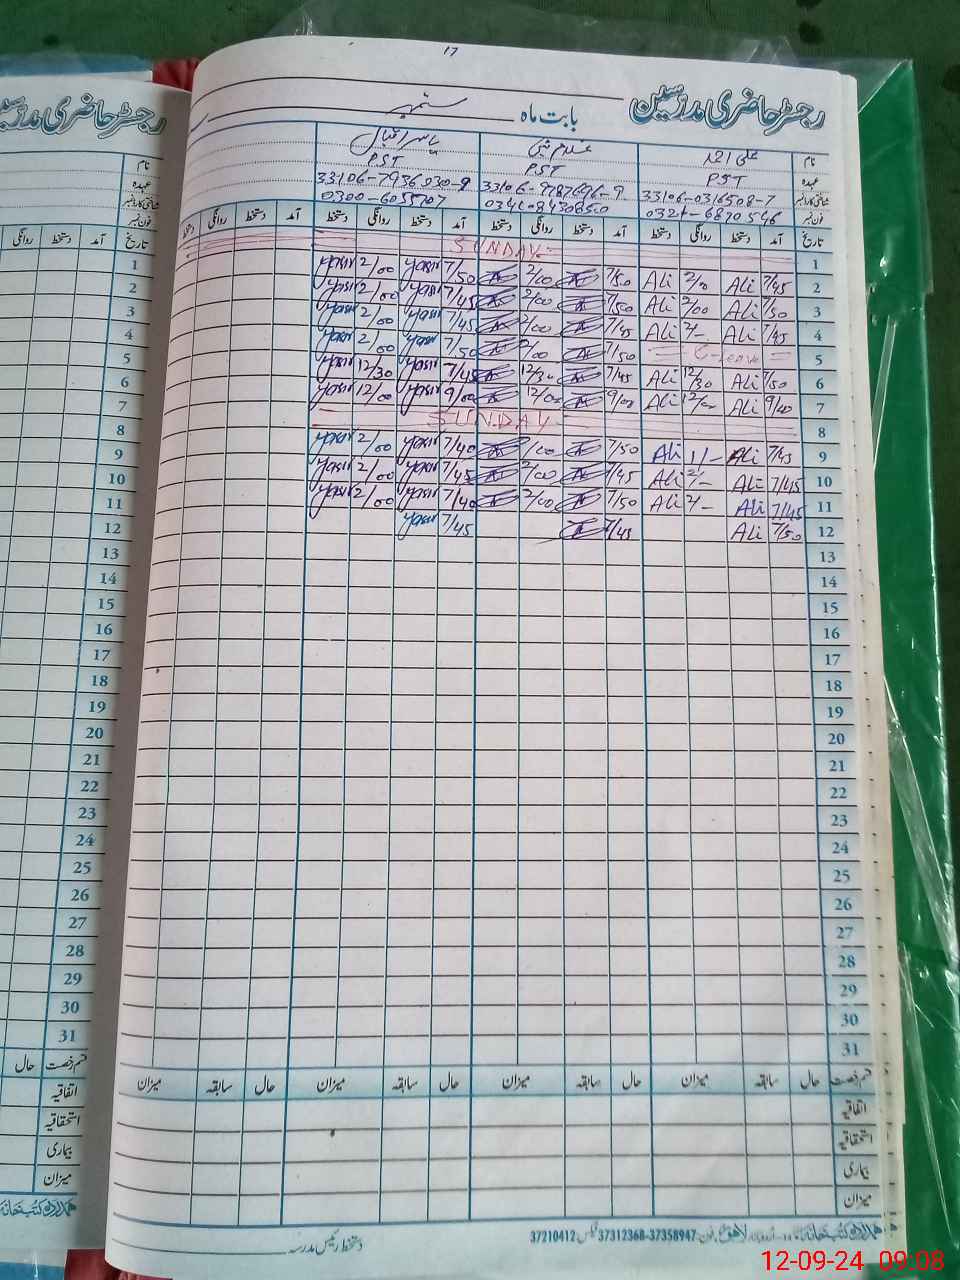 17
رجسٹر حاضری مدرسین بابت ماہ ستمبر
نام علی احمد غلام نبی یاسر اقبال
عہدہ PST PST PST
شناختی کارڈ نمبر 33106-0316508-7 33106-9787696-9 33106-7936030-9
فون نمبر 0321-6870546 034608430850 0300-6055707
تاریخ آمد دستخط روانگی دستخط آمد دستخط روانگی دستخط آمد دستخط روانگی دستخط آمد دستخط روانگی دستخط
1 SUNDAY
2 7/45 Ali 2/0 Ali 7/50 2/00 7/50 yasir 2/00 yasir
3 7/50 Ali 2/00 Ali 7/50 2/00 7/45 yasir 2/00 yasir
4 7/45 Ali 2/- Ali 7/45 2/00 7/45 yasir 2/00 yasir
5 C-leave 7/50 2/00 7/50 yasir 2/00 yasir
6 7/50 Ali 12/30 Ali 7/45 12/30 7/45 yasir 12/30 yasir
7 9/00 Ali 12/00 Ali 9/00 12/00 9/00 yasir 12/00 yasir
8 SUNDAY
9 7/45 Ali 1/- Ali 7/50 /00 7/40 yasir 2/00 yasir
10 7/45 Ali 2/- Ali 7/45 2/00 7/45 yasir 2/00 yasir
11 7/45 Ali 2/- Ali 7/50 2/00 7/40 yasir 2/00 yasir
12 7/50 Ali 7/45 7/45 yasir
13
14
15
16
17
18
19
20
21
22
23
24
25
26
27
28
29
30
31
قسم رخصت حال سابقہ میزان حال سابقہ میزان حال سابقہ میزان حال سابقہ میزان
اتفاقیہ
استحقاقیہ
بیماری
میزان
ہمدرد کتب خانہ اردو بازار لاہور فون: 37358947-37312368 فیکس 37210412
دستخط رئیس مدرسہ
رجسٹر حاضری مدرسین
نام
عہدہ
شناختی کارڈ نمبر
فون نمبر
تاریخ آمد دستخط روانگی
1
2
3
4
5
6
7
8
9
10
11
12
13
14
15
16
17
18
19
20
21
22
23
24
25
26
27
28
29
30
31
قسم رخصت حال
اتفاقیہ
استحقاقیہ
بیماری
میزان
ہمدرد کتب خانہ
12-09-24 09:08